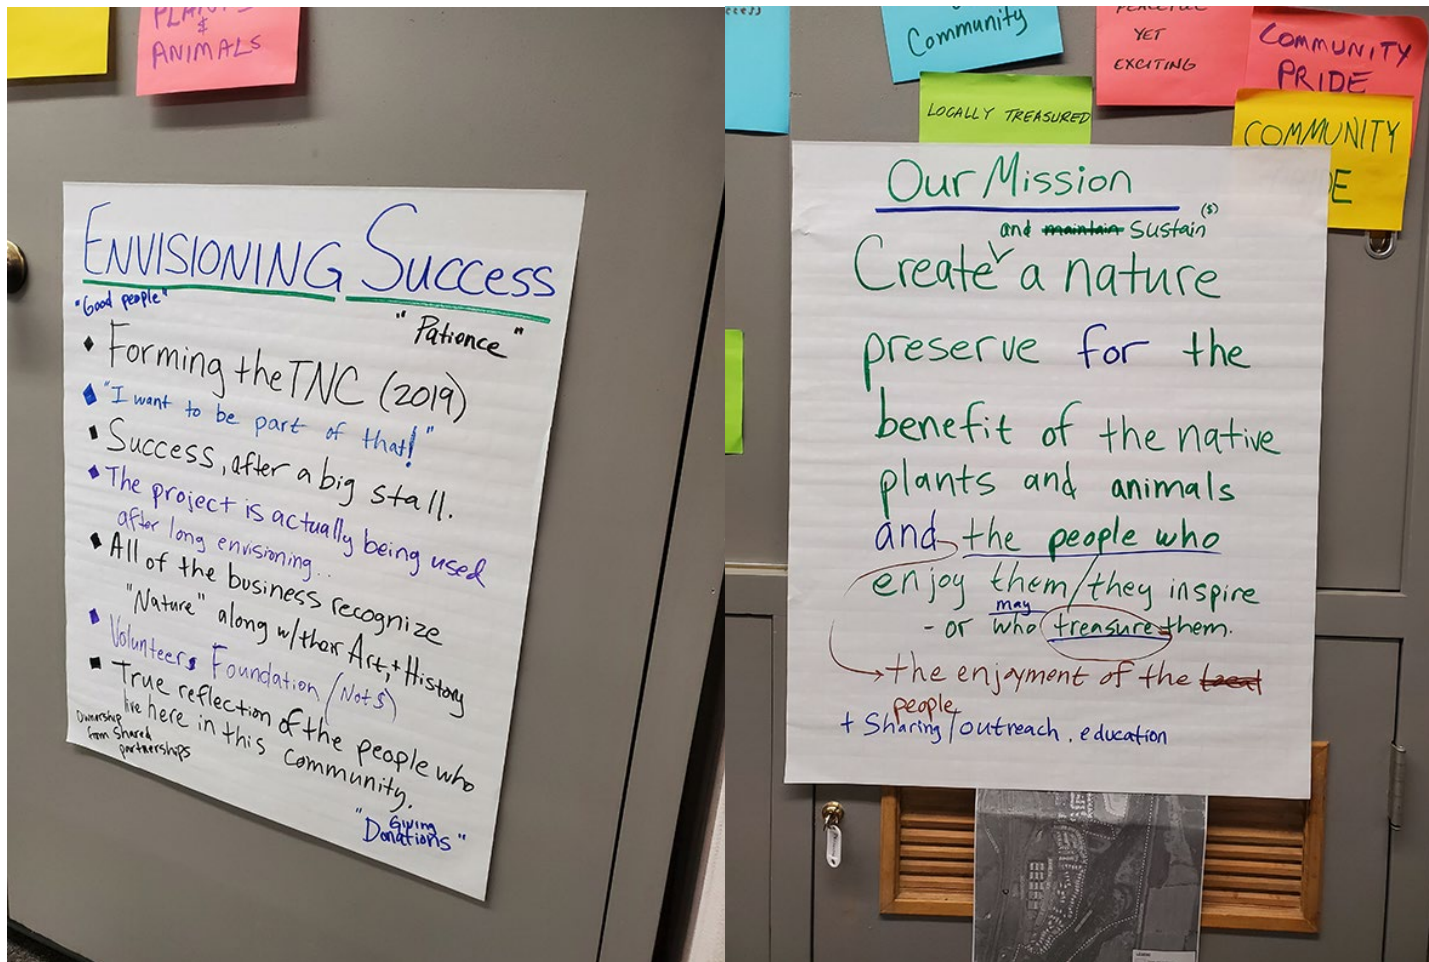 PLANTS
&
ANIMALS
ENVISIONING SUCCESS
"Good people"
"Patience"
Forming the TNC (2019)
"I want to be part of that!"
Success, after a big stall.
The project is actually being used
after long envisioning...
All of the business recognize
"Nature" along w/their Art, + History
Volunteers Foundation (Not $)
True reflection of the people who
live here in this community.
Ownership
from shared
partnerships
Giving
"Donations"
Community
PEACEFUL
YET
EXCITING
COMMUNITY
PRIDE
LOCALLY TREASURED
COMMUNITY
DE
Our Mission
and maintain sustain (s)
Create a nature
preserve for the
benefit of the native
plants and animals
and the people who
enjoy them/they inspire
may
- or who treasure them.
the enjoyment of the local
people
+ Sharing/outreach, education